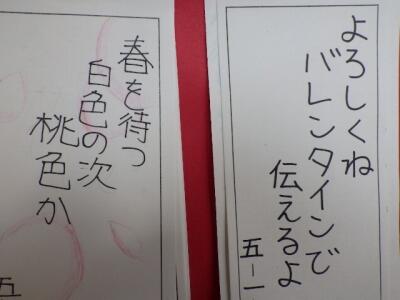 よろしくね
バレンタインで
伝えるよ
五－一
春を待つ
白色の次
桃色か
五